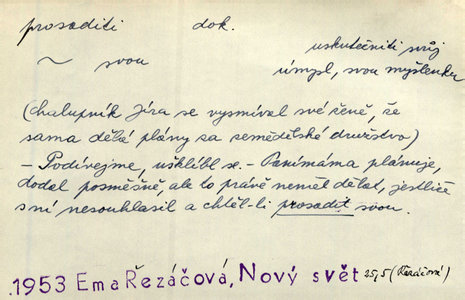 prosaditi dok.
uskutečniti svůj
~ svou úmysl, svou myšlenku
(chalupník Jíra se vysmíval své ženě, že
sama dělá plány za zemědělské družstvo)
– Podívejme, ušklíbl se. – Panímáma plánuje,
dodal posměšně, ale to právě neměl dělat, jestliže
s ní nesouhlasil a chtěl-li prosadit svou.
.1953 Ema Řezáčová, Nový svět 25,5 (Řezáčová)